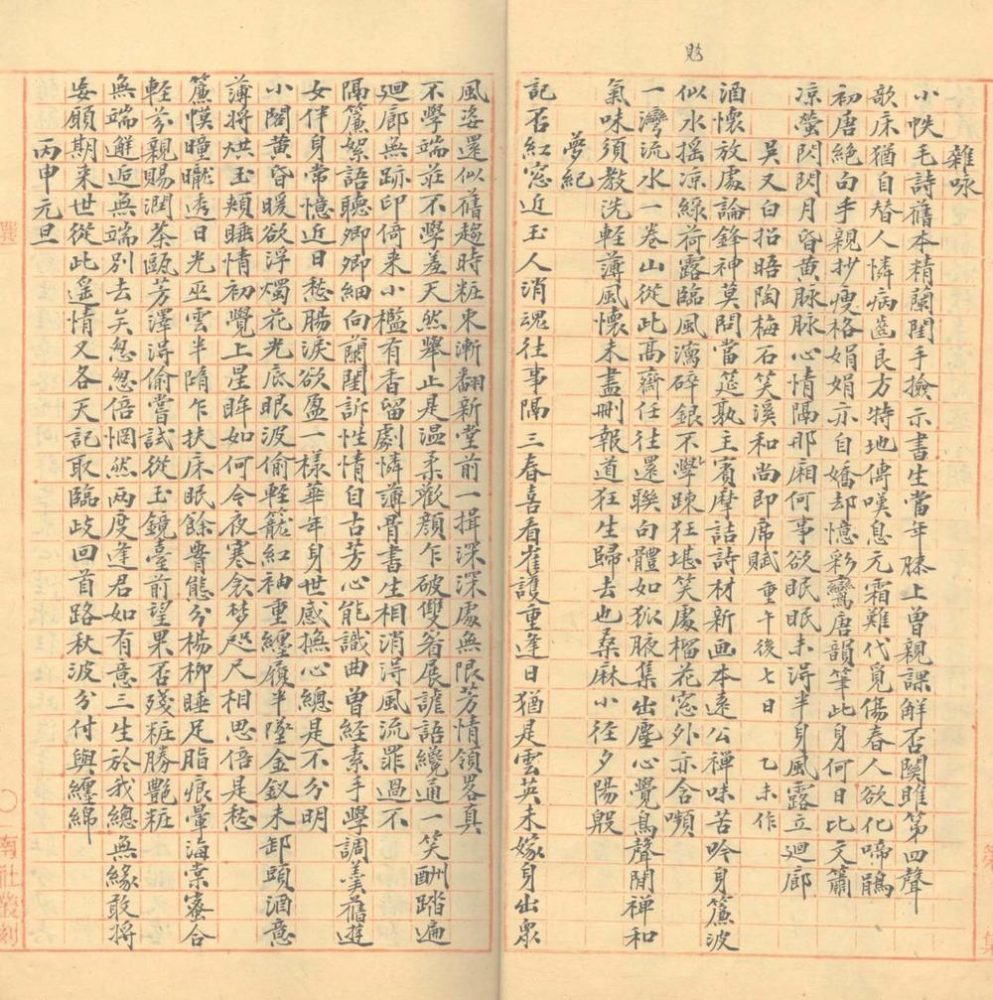 雜咏
小帙毛詩舊本精蘭閨手撿示書生當年膝上曾親課解否關雎第四聲
歌床猶自替人憐病齒良方特地傳嘆息元霜難代覓傷春人欲化啼鵑
初唐絕句手親抄瘦格娟娟亦自嬌却憶彩鸞唐韻筆此身何日比文簫
凉螢閃閃月昏黃脉脉心情隔那廂何事欲眠眠未淂半身風露立迴廊
吳又白招晤陶梅石笑溪和尚即席賦重午後七日 乙未作
酒懷放處論鋒神莫問當筵孰主賓摩詰詩材新画本遠公禪味苦吟身簾波
似水摇凉綠荷露臨風瀉碎銀不學疎狂堪笑處榴花窓外亦含嚬
一灣流水一卷山從此髙齋任往還聯句體如狐腋集出塵心覺鳥聲閒禅和
氣味須教洗輕薄風懷未盡刪報道狂生歸去也桑麻小径夕陽殷
夢紀
記否紅窓近玉人消魂往事隔三春喜看崔護重逢日猶是雲英未嫁身出衆
風姿還似舊趨時粧束漸翻新堂前一揖深深處無限芳情領畧真
不學端莊不學羞天然舉止是温柔歡顔乍破雙眉展謔語纔通一笑酬踏遍
迴廊無跡印倚来小檻有香留劇憐薄骨書生相消淂風流罪過不
隔簾絮語聽卿卿細向蘭閨訴性情自古芳心能識曲曾経素手學調羹舊遊
女伴身常憶近日愁腸淚欲盈一樣華年身世感撫心總是不分明
小閣黄昏暖欲浮燭花光底眼波偷輕籠紅袖重纏履半墜金釵未卸頭酒意
薄將烘玉頰睡情初覺上星眸如何今夜寒衾梦咫尺相思倍是愁
簾幙曈曨透日光巫雲半隋乍扶床眠餘鬢態分楊柳睡足脂痕暈海棠蜜合
輕芬親賜潤茶甌芳澤淂偷嘗試從玉鏡臺前望果否殘粧勝艷粧
無端邂逅無端别去矣忽忽倍惘然兩度逢君如有意三生於我總無緣敢將
妄願期来世從此遥情又各天記取臨歧回首路秋波分付與纏綿
丙申元旦
南社叢刻